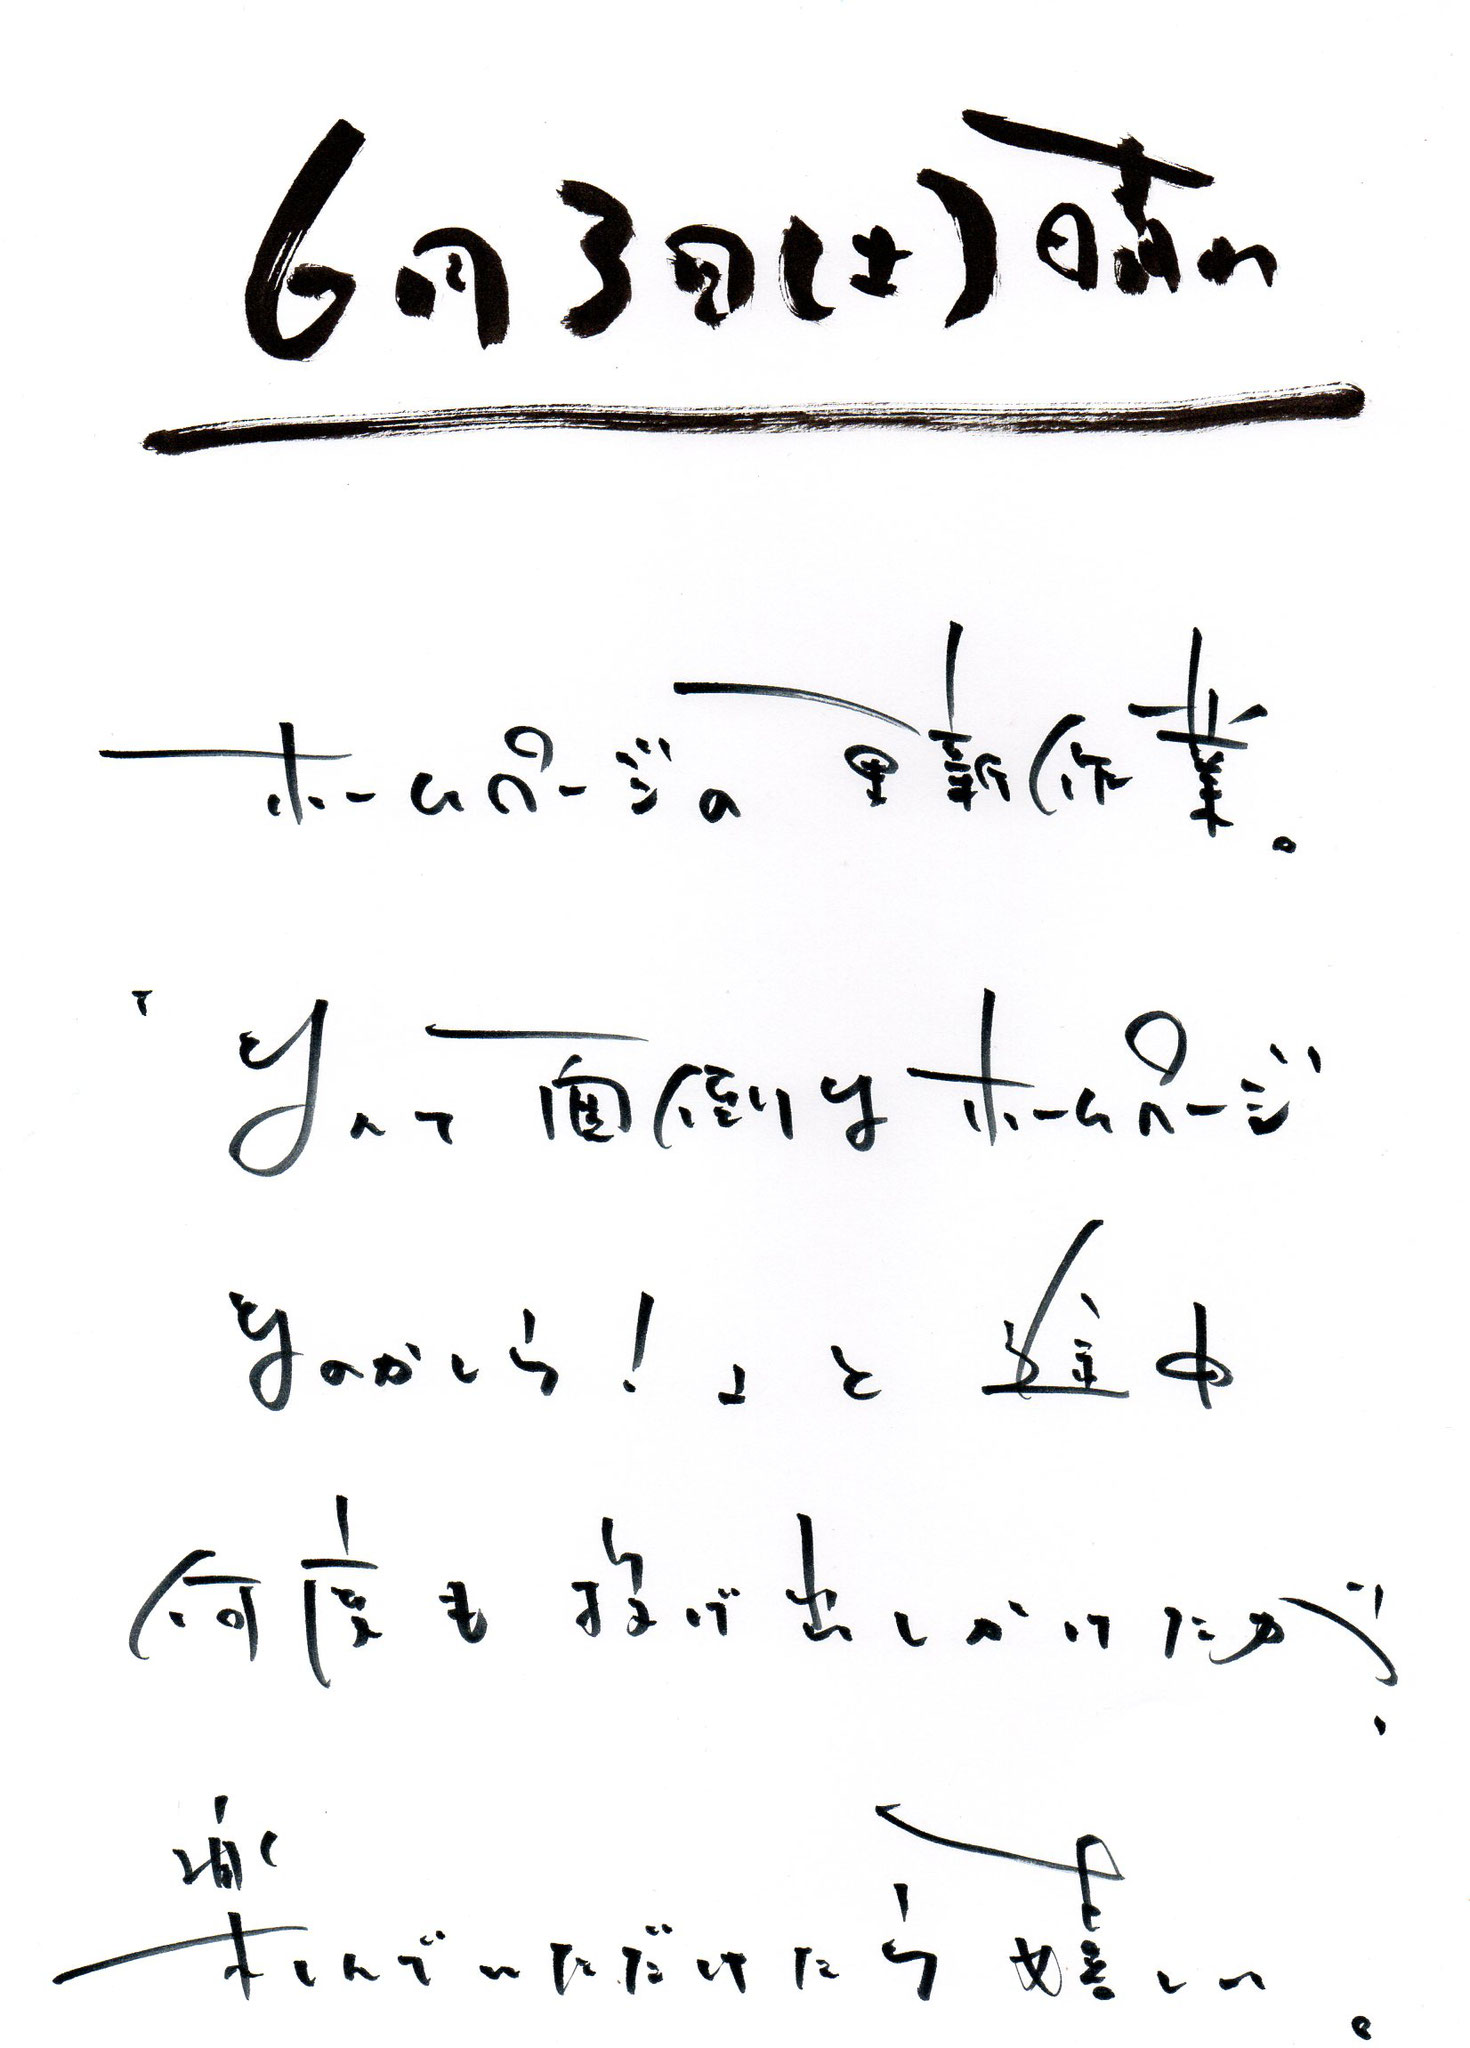 6月3日(土)晴れ
ホームページの更新作業。
「なんて面倒なホームページ
なのかしら!」と途中
何度も投げ出しかけたが、
楽しんでいただけたら嬉しい。